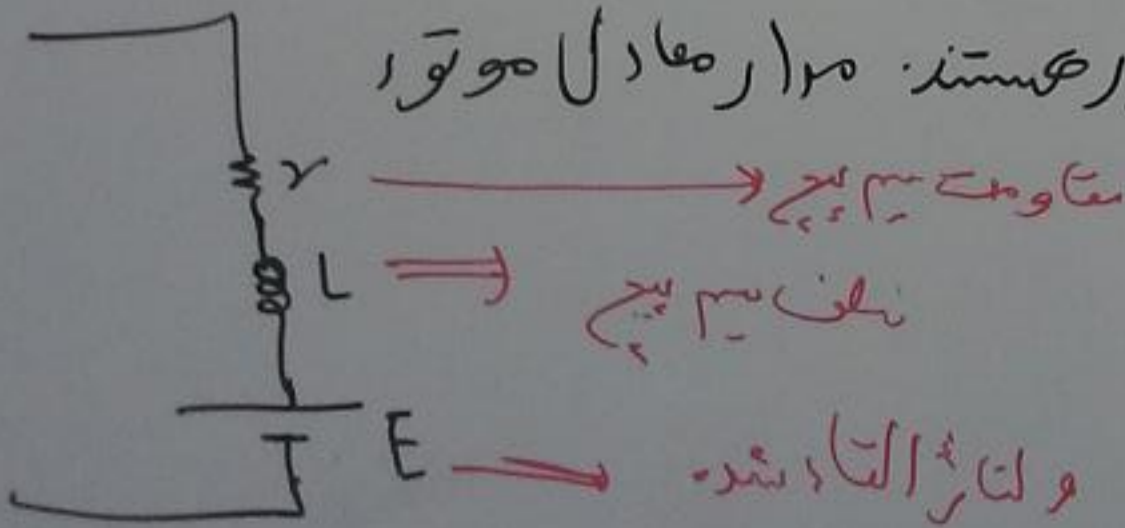 هستند. مدار معادل موتور
r مقاومت سیم پیچ
L سلف سیم پیچ
E ولتاژ القاء شده